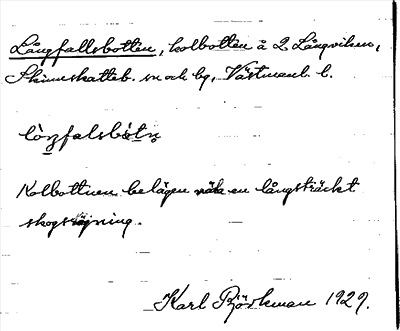 Långfallsbotten, kolbotten å 2 Långviken,
Skinnskatteb. sn och bg, Västmanl. l.
Kolbottnen belägen nära en långsträckt
skogsröjning.
Karl Björkman 1929.